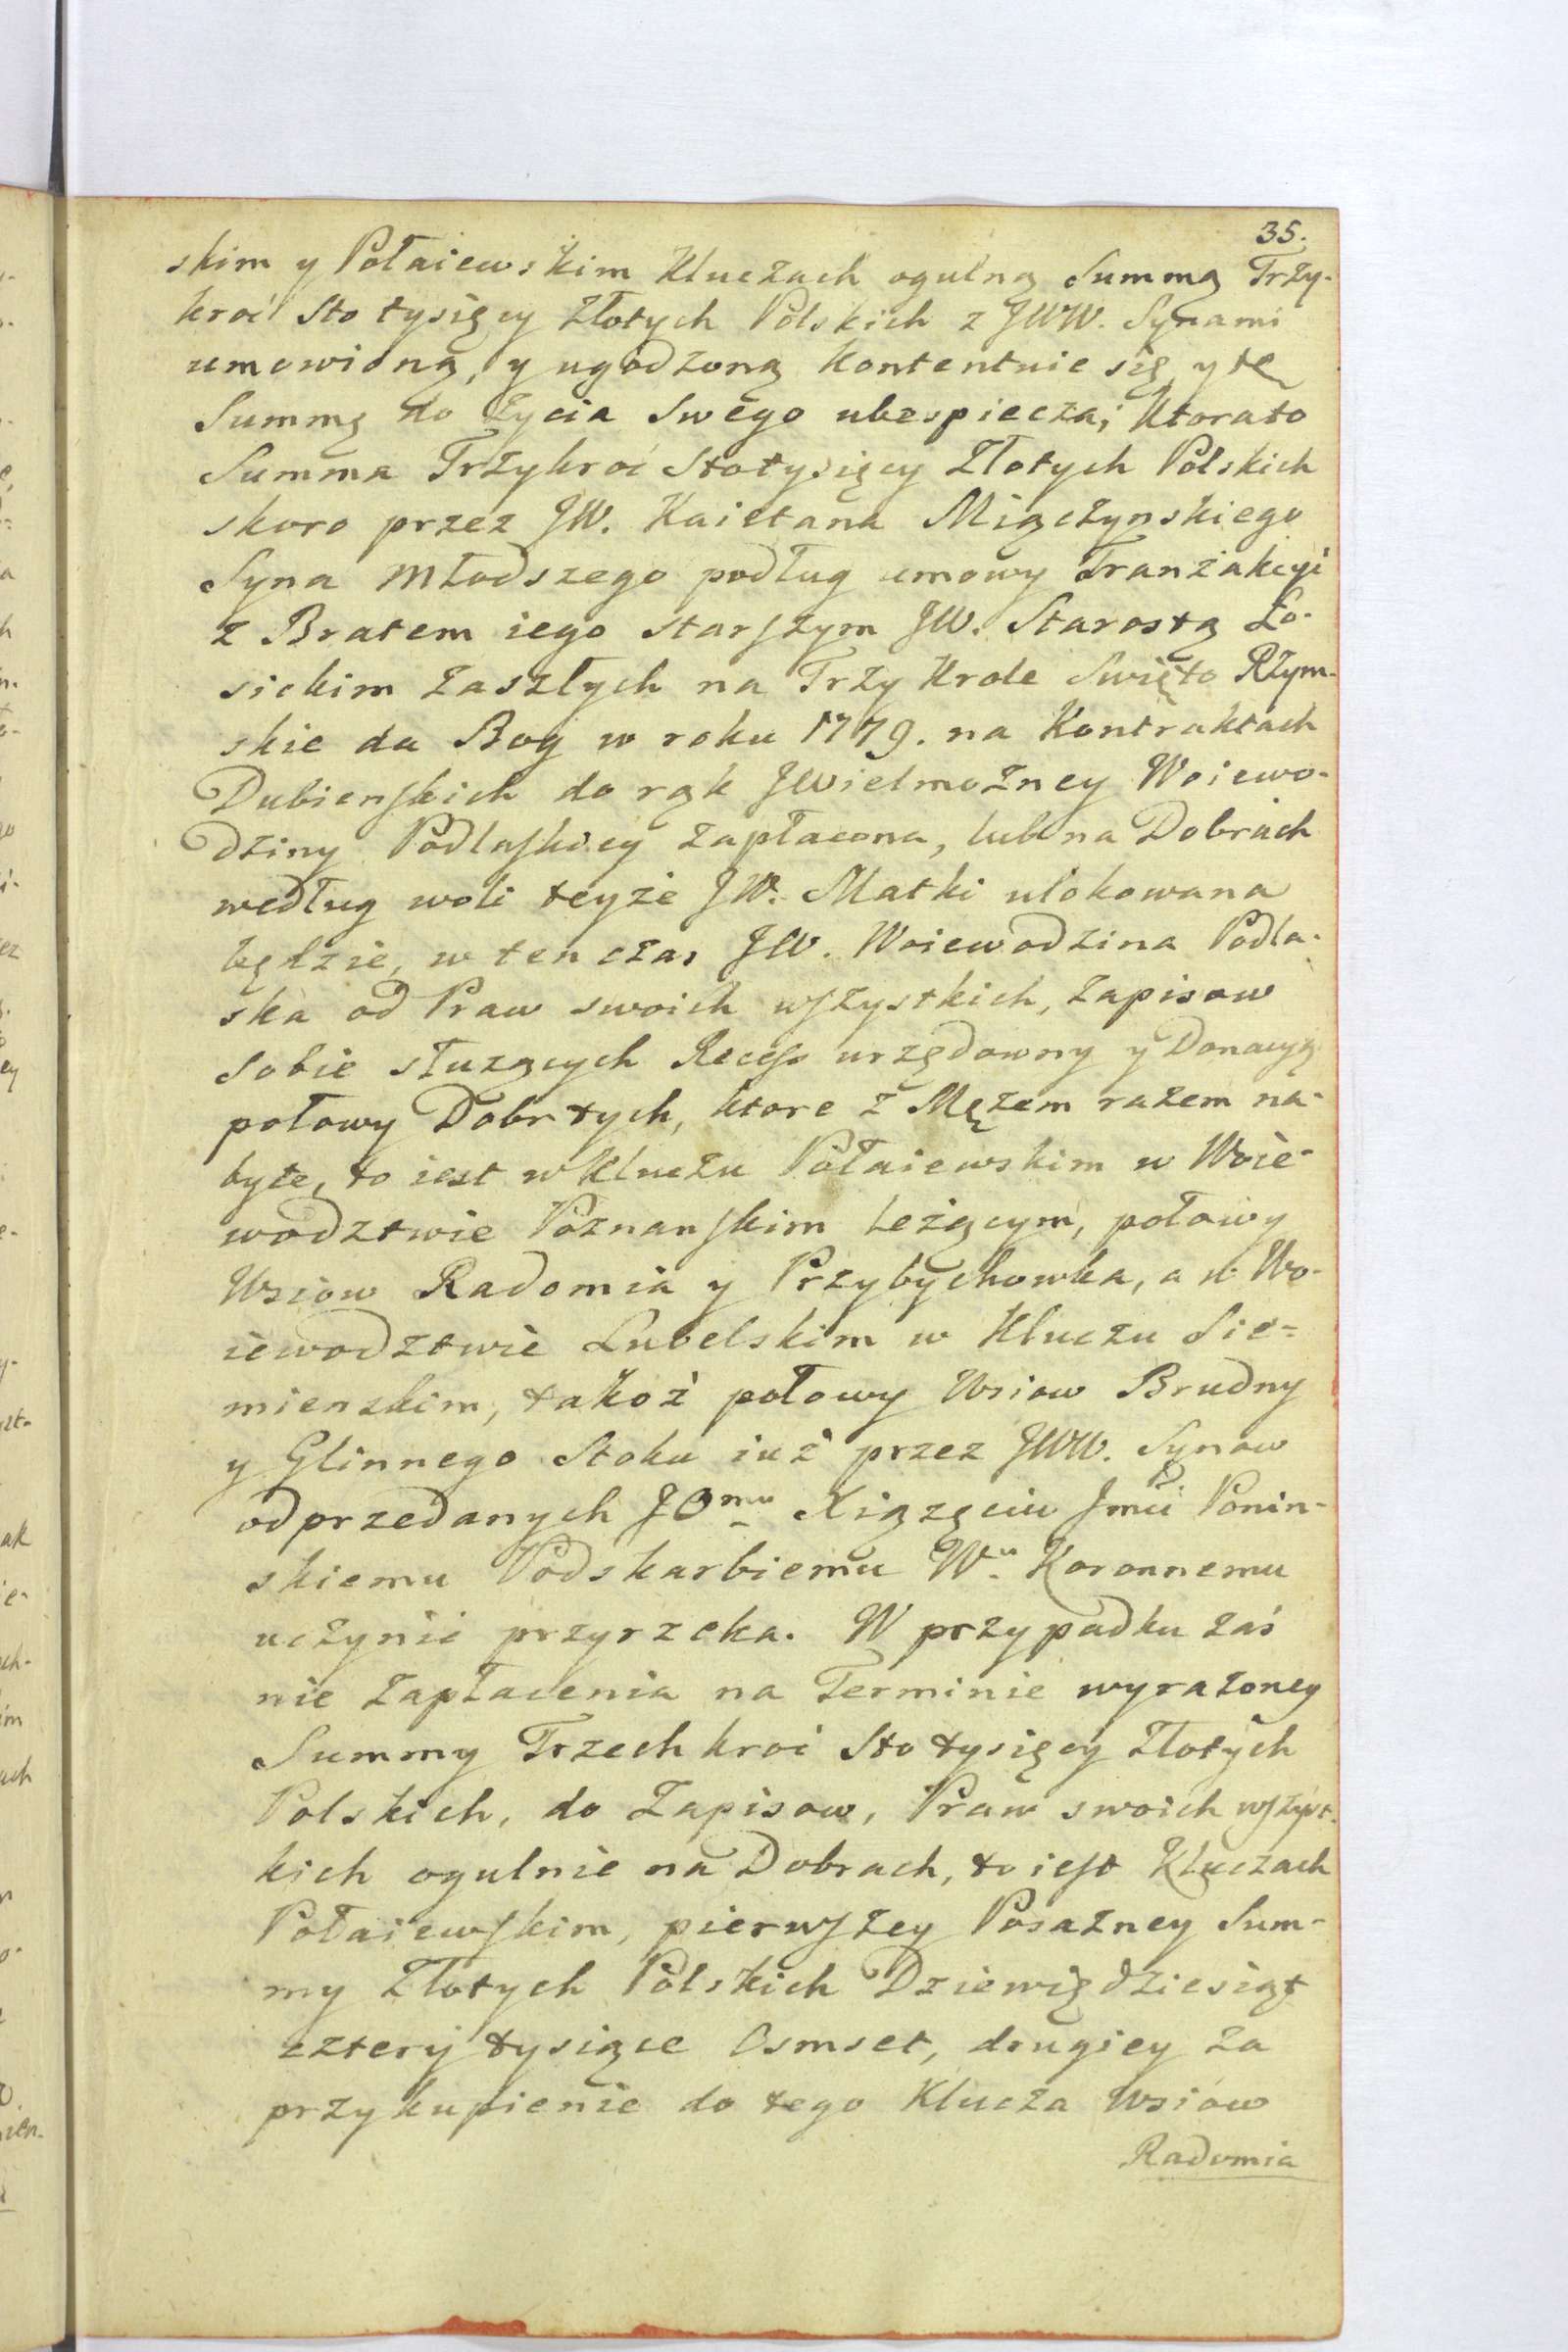 35.
skim y Połaiewskim Kluczach ogulną Summą Trzy-
kroć Sto tysięcy Złotych Polskich z JWW. Synami
umowioną, y ugodzoną kontentuie się y tę
Summę do Zycia Swego ubespiecza; Ktorato
Summa Trzykroć Stotysięcy Złotych Polskich
skoro przez JW. Kaietana Miączynskiego
Syna Młodszego podług umowy Tranzakcyi
z Bratem iego starszym JW. Starostą Ło-
sickim zaszłych na Trzy Krole Swięto Rzym-
skie da Bog w roku 1779. na Kontraktach
Dubienskich do rąk JWielmozney Woiewo-
dziny Podlaskiey zapłacona, lub na Dobrach
według woli teyże JW. Matki ulokowana
będzie, w ten czas JW. Woiewodzina Podla-
ska od Praw swoich wszystkich, zapisow
Sobie słuzących Recess urzędowny y Donacyą
połowy Dobr tych, ktore z Męzem razem na-
byte, to iest w Kluczu Połaiewskim w Woie-
wodztwie Poznanskim leżącym, połowy
Wsiow Radomia y Przybychowka, a w Wo-
iewodztwie Lubelskim w Kluczu Sie-
mienskim, takoż połowy Wsiow Brudny
y Glinnego Stoku iuż przez JWW. Synow
odprzedanych JOmu Xiązęciu Jmći Ponin-
skiemu Podskarbiemu Wu Koronnemu
uczynić przyrzeka. W przypadku zaś
nie zapłacenia na Terminie wyrazoney
Summy Trzech kroć Sto tysięcy Złotych
Polskich, do Zapisow, Praw swoich wszyst-
kich ogulnie na Dobrach, to iest Kluczach
Połaiewskim, pierwszey Posazney Sum-
my Złotych Polskich Dziewiędziesiąt
cztery tysiące Osmset, drugiey za
przykupienie do tego Klucza Wsiow
Radomia